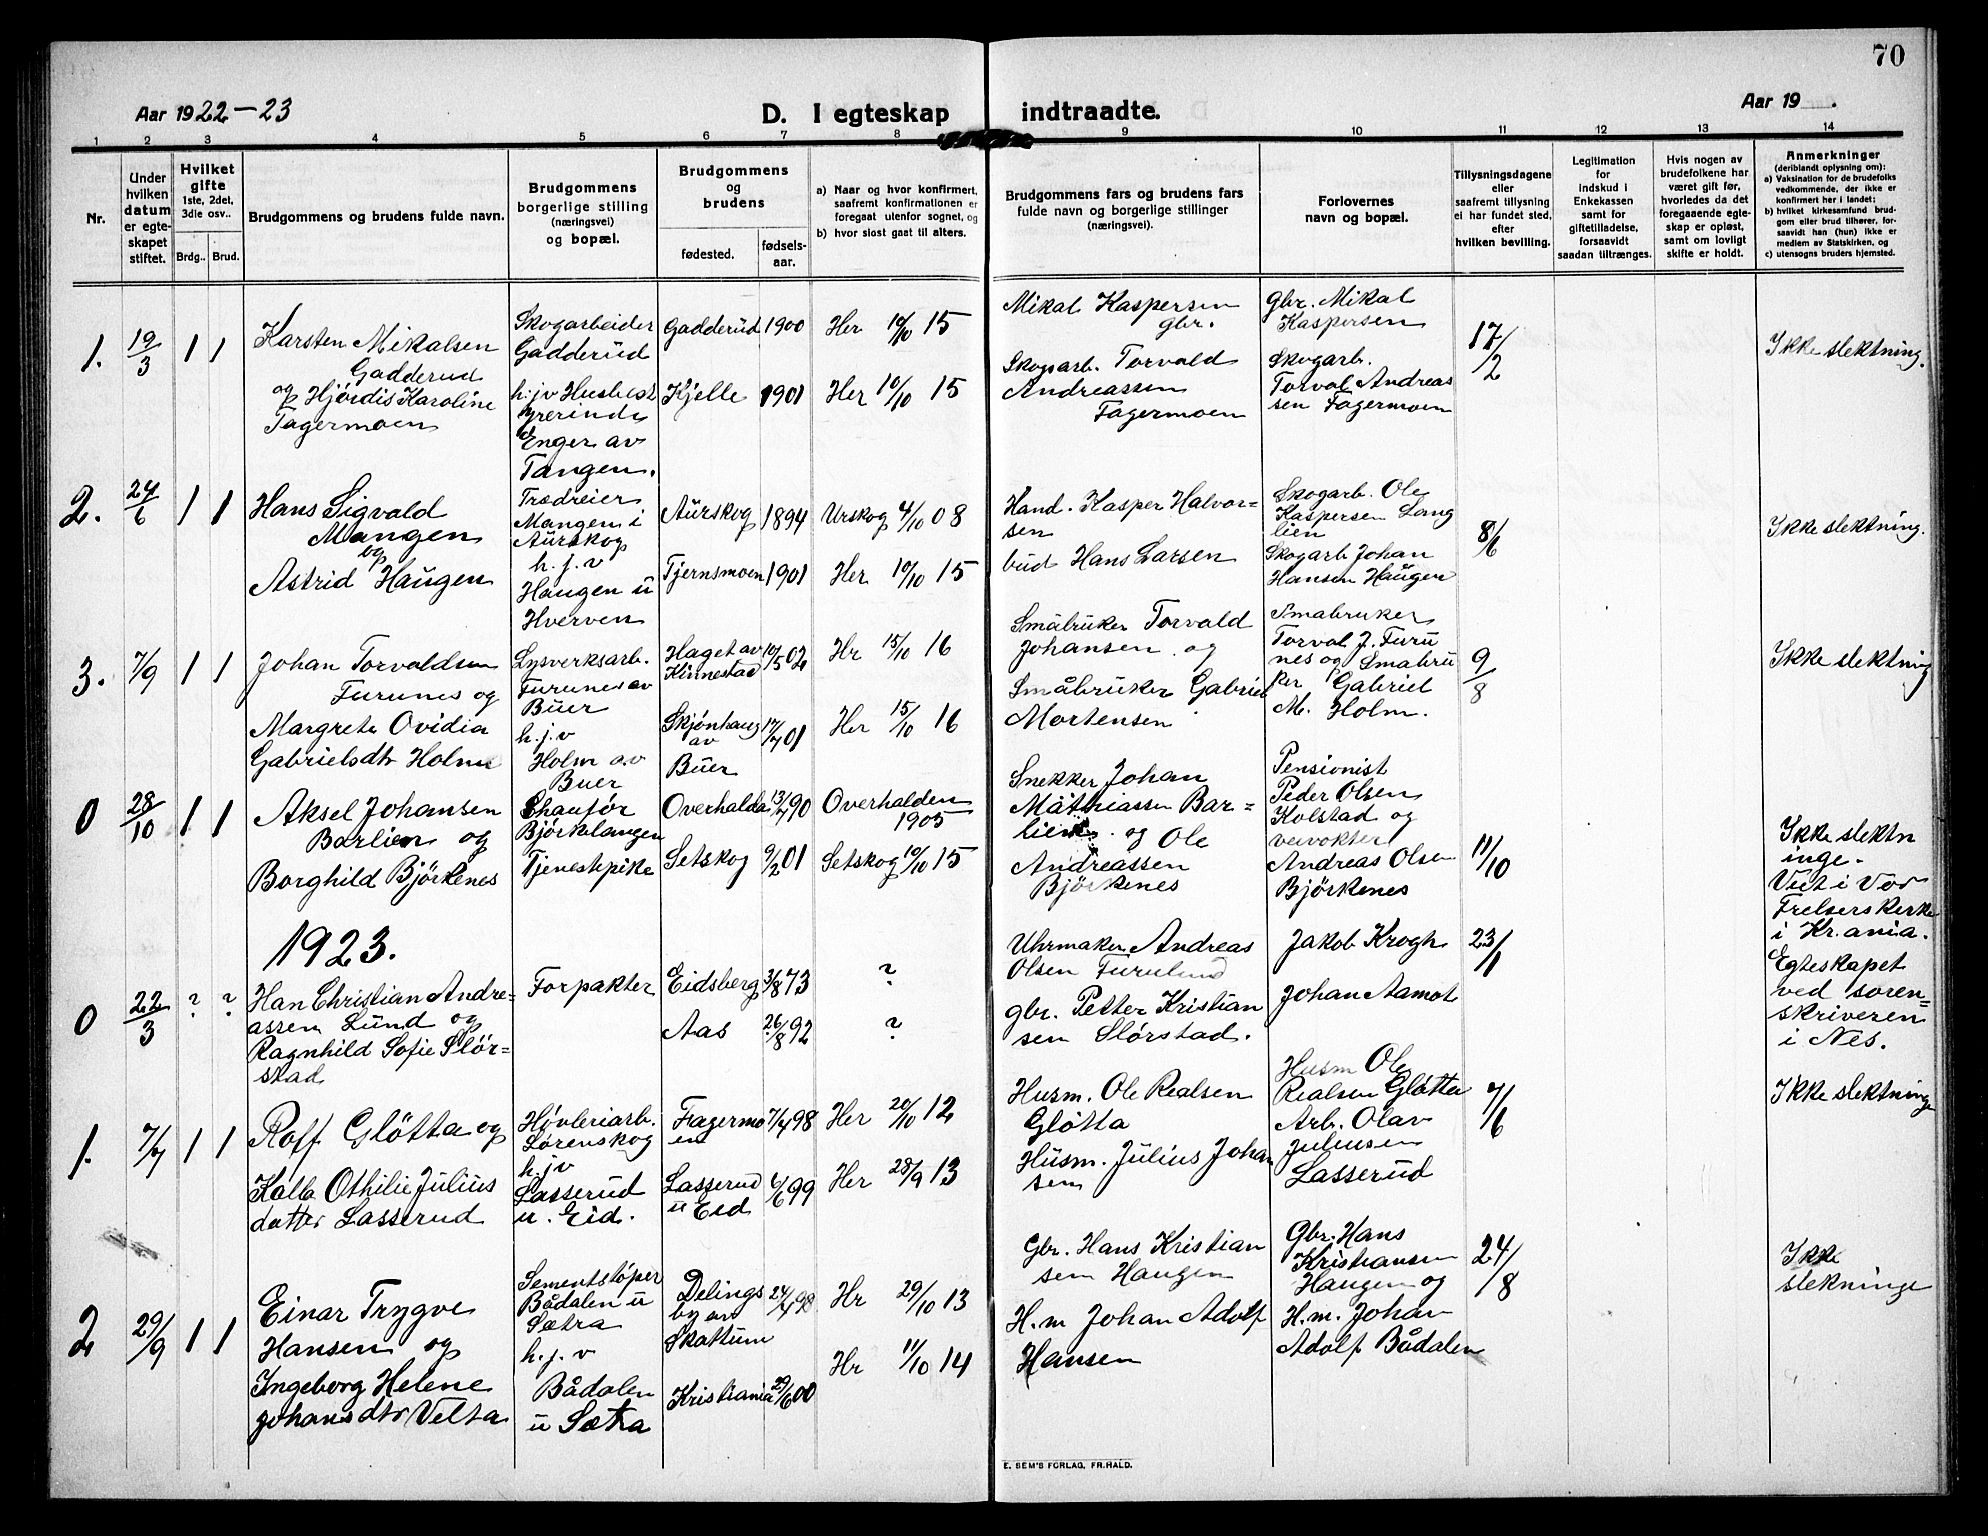 70
Aar 1922-23
D. I egteskap indtraadte.
Aar 19 .
1 2 3 4 5 6 7 8 9 10 11 12 13 14
Nr.
Under
hvilken
datum
er egte-
skapet
stiftet.
Hvilket
gifte
1ste, 2det,
3die osv..
Brdg.. Brud.
Brudgommens og brudens fulde navn.
Brudgommens
borgerlige stilling
(næringsvei)
og bopæl.
Brudgommens
og
brudens
fødested.
fødsels-
aar.
a) Naar og hvor konfirmert,
saafremt konfirmationen er
foregaat utenfor sognet, og
b) hvor sidst gaat til alters.
Brudgommens fars og brudens fars
fulde navn og borgerlige stillinger
(næringsvei).
Forlovernes
navn og bopæl.
Tillysningsdagene
eller
saafremt tillysning
ei har fundet sted,
efter
hvilken bevilling.
Legitimation
for
indskud i
Enkekassen
samt for
giftetilladelse,
forsaavidt
saadan tiltrænges.
Hvis nogen av
brudefolkene har
været gift før,
hvorledes da det
foregaaende egte-
skap er opløst,
samt om lovligt
skifte er holdt.
Anmerkninger
(deriblandt oplysning om):
a) Vaksination for de brudefolks
vedkommende, der ikke er
konfirmert her i landet;
b) hvilket kirkesamfund brud-
gom eller brud tilhører, for-
saavidt han (hun) ikke er
medlem av Statskirken, og
c) utensogns bruders hjemsted.
1. 19/3 1 1
Karsten Mikalsen
Gadderud
og Hjördis Karoline
Fagermoen
Skogarbeider
Gadderud
h:jv Husbest
yrerinde
Enger av
Tangen.
Gadderud 1900 Her 10/10 15
Kjelle 1901 Her 10/10 15
Mikal Kaspersen
gbr.
Skogarb. Torvald
Andreassen
Fagermoen
Gbr. Mikal
Kaspersen
Skogarb.
Torval Andreas
sen Fagermoen
17/2
Ikke slektning.
2. 24/6 1 1
Hans Sigvald
Mangen
og
Astrid Haugen
Trædreier
Mangen i
Aurskog
h. j. v
Haugen u
Hverven
Aurskog 1894 Urskog 4/10 08
Tjernsmoen 1901 Her 10/10 15
Hand. Kasper Halvor-
sen
bud Hans Larsen
Skogarb. Ole
Kaspersen Lang
lien
Skogarb Johan
Hansen Haugen
8/6
Ikke slektning.
3. 7/9 1 1
Johan Torvaldsen
Furunes og
Margrete Ovidia
Gabrielsdtr Holm
Lysverksarb.
Furunes av
Buer
h.j.v
Holm av
Buer
Haget av
Kinnestad 10/5 02 Hr 15/10 16
Skjönhaug
av
Buer 17/7 01 Her 15/10 16
Småbruker Torvald
Johansen og
Småbruker Gabriel
Mortensen
Smabruker
Torval J. Furu
nes og Smabru
ker Gabriel
M. Holm.
9/8
Ikke slektning
0 28/10 1 1
Aksel Johansen
Barlien og
Borghild Björkenes
Chauför
Björkelangen
Tjenestpike
Overhalda 13/7 90 Overhalden
1905
Setskog 9/2 01 Setskog 10/10 15
Snekker Johan
Mathiassen Bar=
lien og Ole
Andreassen
Björkenes
Pensionist
Peder Olsen
Kolstad og
veivokter
Andreas Olsen
Björkenes
11/10
Ikke slektn
inge.
Viet i Vor
Frelserskirke
i Kr.ania.
1923.
0 22/3 ? ?
Han Christian Andre=
assen Lund og
Ragnhild Sofie Slör=
stad
Forpakter
Eidsberg 3/8 73 ?
Aas 26/8 92 ?
Uhrmaker Andreas
Olsen Furulund
gbr. Petter Kristian
sen Slörstad.
Jakob Krogh
Johan Aamot
23/1
Egteskapet
ved soren=
skriveren
i Nes.
1. 7/7 1 1
Rolf Glötta og
Kalla Othilie Julius
datter Lasserud
Høvleriarb.
Lørenskog
h.jv
Lasserud
u. Eid.
Fagermo
en 7/4 98 Her 20/10 12
Lasserud
u Eid 4/6 99 Her 28/9 13
Husm. Ole Realsen
Glötta
Husm. Julius Johan
sen
Husm Ole
Realsen Glötta
Arb. Olav
Juliussen
Lasserud
7/6
Ikke slektninge
2 29/9 1 1
Einar Trygve
Hansen og
Ingeborg Helene
Johansdtr Velta
Sementstöper
Bådalen u
Sætra
h. j. v
Bådalen
u Sætra
Delings
by av
Skattum 24/4 98 Hr 29/10 13
Kristiania 29/6 00 Hr 11/10 14
Gbr. Hans Kristian
sen Haugen
H.m Johan Adolf
Hansen
Gbr. Hans
Kristiansen
Haugen og
H.m. Johan
Adolf Bådalen
24/8
Ikke
slekninge
E. SEM'S FORLAG, FR.HALD.